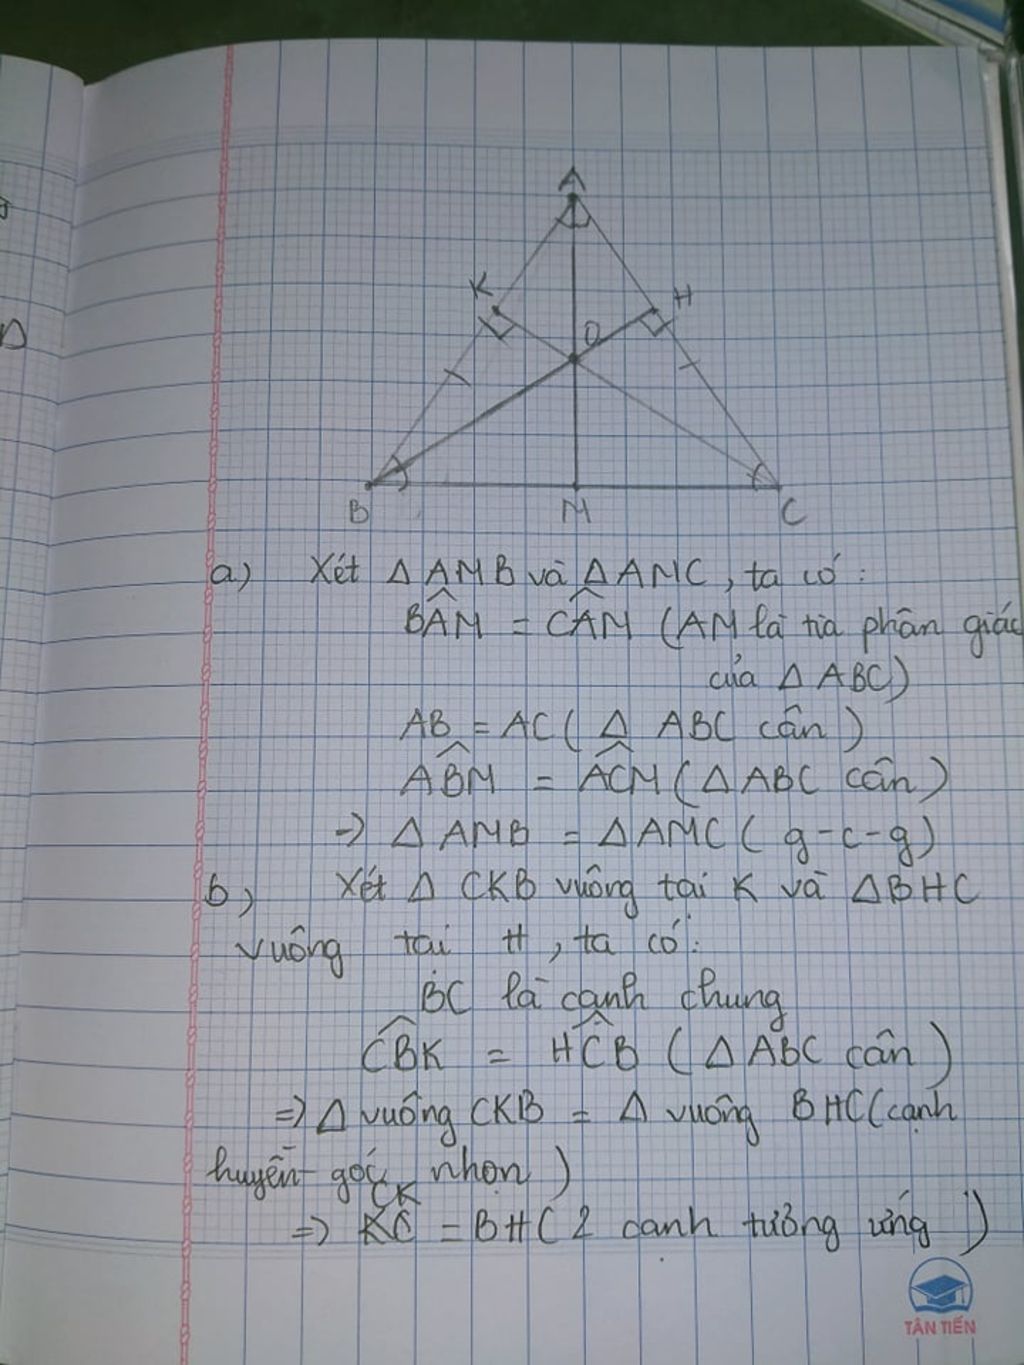 A
K
H
O
B
M
C
a) Xét Δ AMB và Δ AMC, ta có:
BÂM = CÂM (AM là tia phân giác
của Δ ABC)
AB = AC (Δ ABC cân)
AB̂M = AĈM (Δ ABC cân)
=> Δ AMB = Δ AMC (g-c-g)
b) Xét Δ CKB vuông tại K và Δ BHC
vuông tại H, ta có:
BC là cạnh chung
CB̂K = HĈB (Δ ABC cân)
=> Δ vuông CKB = Δ vuông BHC (cạnh
huyền - góc nhọn)
CK
=> KC = BH (2 cạnh tương ứng)
TÂN TIẾN